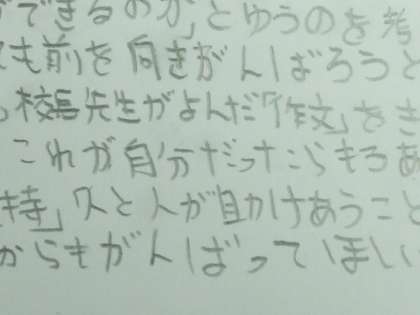 できるのか」とゆうのを考
も前を向きがんばろうと
校長先生がよんだ「作文」を
これが自分だったらもうあ
人と人が助けあうこと
からもがんばってほしい